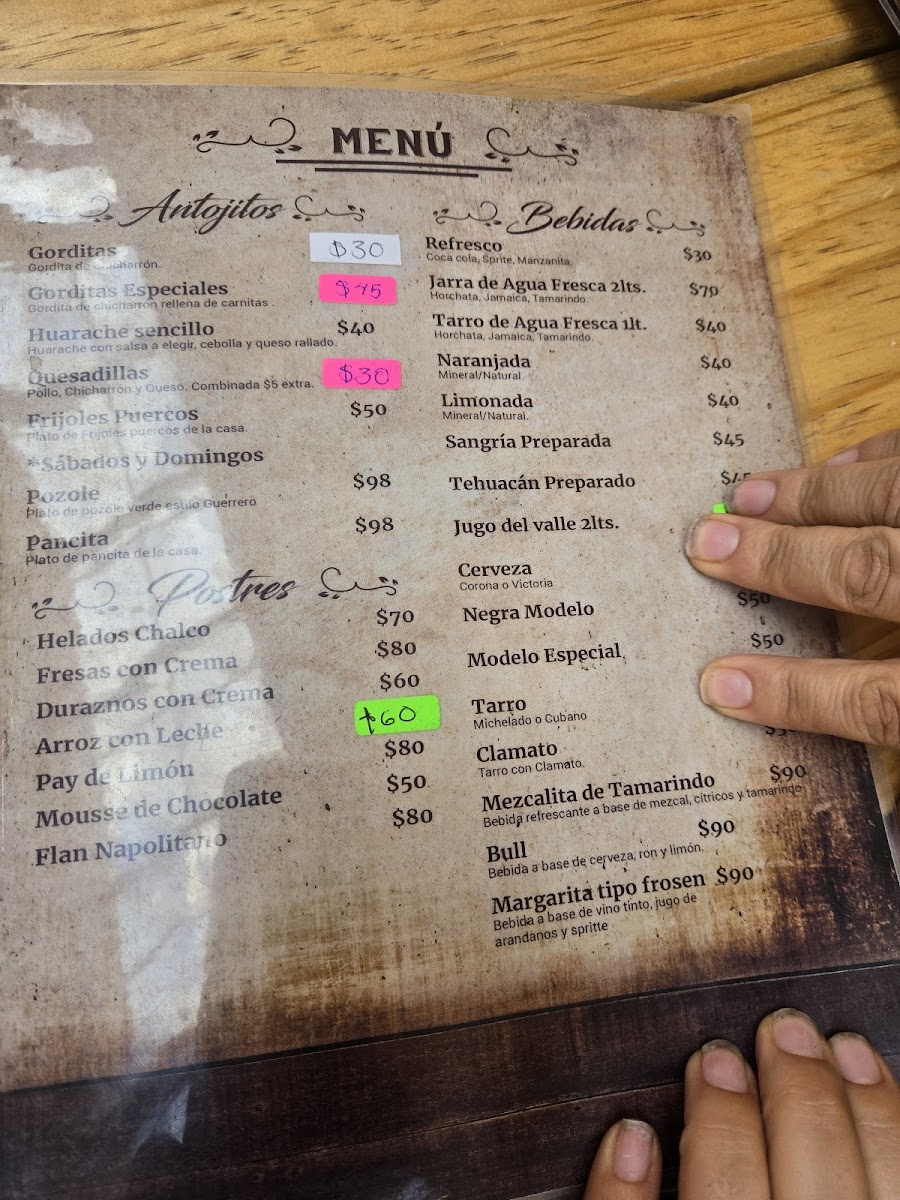 MENÚ
Antojitos
Gorditas $30
Gordita de chicharrón.
Gorditas Especiales $45
Gordita de chicharron rellena de carnitas .
Huarache sencillo $40
Huarache con salsa a elegir, cebolla y queso rallado.
Quesadillas $30
Pollo, Chicharrón y Queso. Combinada $5 extra.
Frijoles Puercos $50
Plato de Frijoles puercos de la casa.
*Sábados y Domingos
Pozole $98
Plato de pozole verde estilo Guerrero
Pancita $98
Plato de pancita de la casa.
Postres
Helados Chalco $70
Fresas con Crema $80
Duraznos con Crema $60
Arroz con Leche $60
Pay de Limón $80
Mousse de Chocolate $50
Flan Napolitano $80
Bebidas
Refresco $30
Coca cola, Sprite, Manzanita,
Jarra de Agua Fresca 2lts. $70
Horchata, Jamaica, Tamarindo.
Tarro de Agua Fresca 1lt. $40
Horchata, Jamaica, Tamarindo.
Naranjada $40
Mineral/Natural.
Limonada $40
Mineral/Natural.
Sangría Preparada $45
Tehuacán Preparado $45
Jugo del valle 2lts.
Cerveza
Corona o Victoria
Negra Modelo $50
Modelo Especial $50
Tarro
Michelado o Cubano
Clamato
Tarro con Clamato.
Mezcalita de Tamarindo $90
Bebida refrescante a base de mezcal, cítricos y tamarindo
Bull $90
Bebida a base de cerveza, ron y limón.
Margarita tipo frosen $90
Bebida a base de vino tinto, jugo de
arandanos y spritte